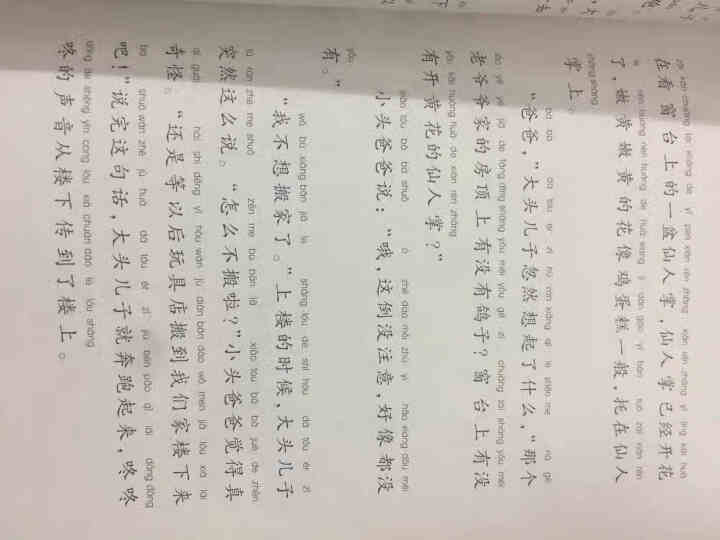 zài kàn chuāng tái shàng de yì pén xiān rén zhǎng xiān rén zhǎng yǐ jīng kāi huā
在看窗台上的一盆仙人掌,仙人掌已经开花
le nèn huáng nèn huáng de huā xiàng jī dàn gāo yì bān tuō zài xiān rén
了,嫩黄嫩黄的花像鸡蛋糕一般,托在仙人
zhǎng shàng
掌上。
bà ba dà tóu ér zi hū rán xiǎng qǐ le shén me nà gè
“爸爸,”大头儿子忽然想起了什么,“那个
lǎo yé ye jiā de fáng dǐng shàng yǒu méi yǒu gē zi chuāng tái shàng yǒu méi
老爷爷家的房顶上有没有鸽子?窗台上有没
yǒu kāi huáng huā de xiān rén zhǎng
有开黄花的仙人掌?”
xiǎo tóu bà ba shuō ò zhè dào méi zhù yì hǎo xiàng dōu méi
小头爸爸说:“哦,这倒没注意,好像都没
yǒu
有。”
wǒ bù xiǎng bān jiā le shàng lóu de shí hòu dà tóu ér zi
“我不想搬家了。”上楼的时候,大头儿子
tū rán zhè me shuō zěn me bù bān la xiǎo tóu bà ba jué de zhēn
突然这么说。“怎么不搬啦?”小头爸爸觉得真
qí guài hái shì děng yǐ hòu wán jù diàn bān dào wǒ men jiā lóu xià lái
奇怪。“还是等以后玩具店搬到我们家楼下来
ba shuō wán zhè jù huà dà tóu ér zi jiù bēn pǎo qǐ lái dōng dōng
吧!”说完这句话,大头儿子就奔跑起来,咚咚
dōng de shēng yīn cóng lóu xià chuán dào le lóu shàng
咚的声音从楼下传到了楼上。